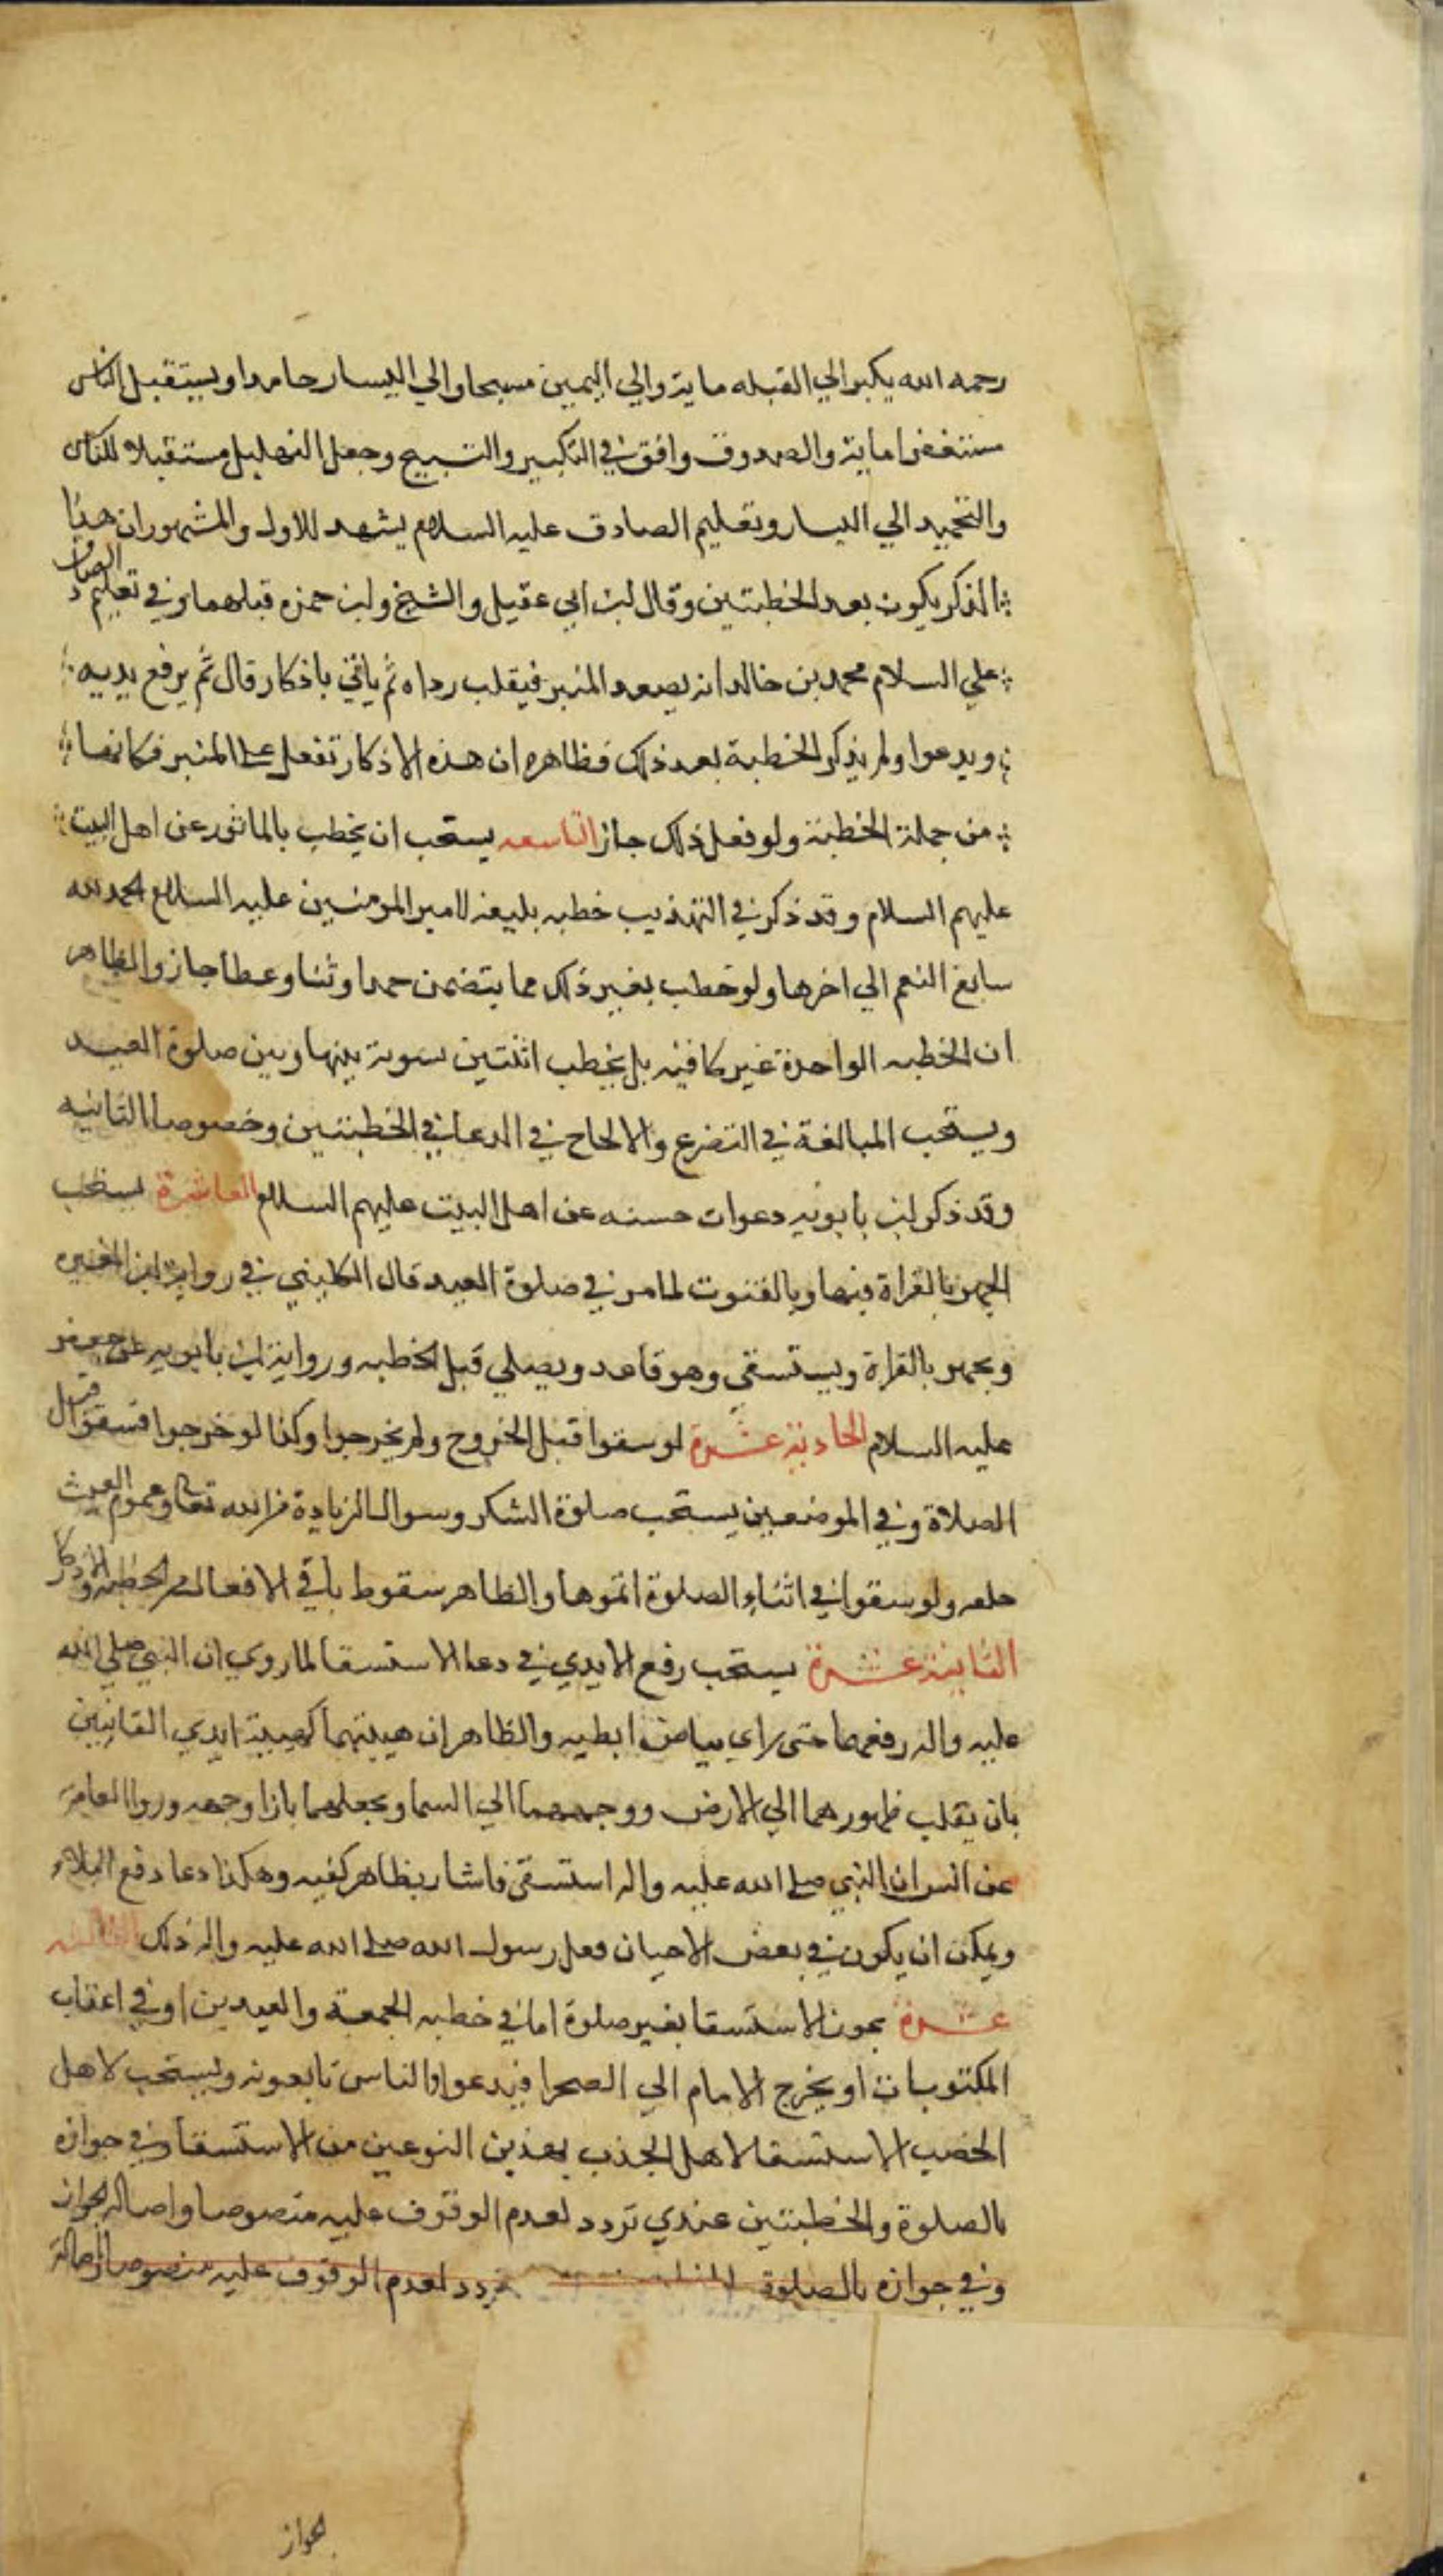 رحمه الله يكبر الي القبله ماية والي اليمين مسبحا والي اليسار حامدا ويستقبل الناس
مستغفرا ماية والصدوق وافق في التكبير والتسبيح وجعل التهليل مستقبلا للناس
والتحميد الي اليسار وتعليم الصادق عليه السلام يشهد للاول والمشهور ان هذا
الذكر يكون بعد الخطبتين وقال ابن ابي عقيل والشيخ وابن حمزه قبلهما وفي تعليم الصادق
علي السلام محمد بن خالد انه يصعد المنبر فيقلب رداه ثم ياتي باذكار قال ثم يرفع يديه
ويدعوا ولم يذكر الخطبة بعد ذلك فظاهره ان هذه الاذكار تفعل على المنبر فكانها
من جملة الخطبة ولو فعل ذلك جاز التاسعه يستحب ان يخطب بالماثور عن اهل البيت
عليهم السلام وقد ذكر في التهذيب خطبه بليغه لامير المومنين عليه السلام الحمد لله
سابغ النعم الي اخرها ولو خطب بغير ذلك مما يتضمن حمدا وثنا وعظا جاز والظاهر
ان الخطبه الواحدة غير كافيه بل يخطب اثنتين تسوية بينها وبين صلوة العيد
ويستحب المبالغة في التضرع والالحاح في الدعا في الخطبتين وخصوصا الثانيه
وقد ذكر ابن بابويه دعوات حسنه عن اهل البيت عليهم السلام العاشرة يستحب
الجهر بالقراة فيها وبالقنوت لما مر في صلوة العيد قال الكليني في رواية ابن المغيره
ويجهر بالقراة ويستسقي وهو قاعد ويصلي قبل الخطبه ورواية ابن بابويه عن جعفر
عليه السلام الحادية عشرة لو سقوا قبل الخروج ولم يخرجوا وكذا لو خرجوا فسقوا قبل
الصلاة وفي الموضعين يستحب صلوة الشكر وسوال الزيادة من الله تعالى وعموم الغيث
خلقه ولو سقوا في اثناء الصلوة اتموها والظاهر سقوط باقي الافعال من الخطبه والاذكار
الثانية عشرة يستحب رفع الايدي في دعا الاستسقا لما روي ان النبي صلي الله
عليه واله رفعهما حتى راي بياض ابطيه والظاهر ان هيئتهما كهيئة ايدي القانتين
بان يقلب ظهورهما الي الارض ووجههما الي السما ويجعلهما بازا وجهه وروا العامة
عن انس ان النبي صلى الله عليه واله استسقى فاشار بظاهر كفيه وهكذا دعا دفع البلاء
ويمكن ان يكون في بعض الاحيان فعل رسول الله صلى الله عليه واله ذلك الثالثه
عشرة يجوز الاستسقا بغير صلوة اما في خطبه الجمعة والعيدين او في اعقاب
المكتوبات او يخرج الامام الي الصحرا فيدعوا والناس تابعونه ويستحب لاهل
الخصب الاستسقا لاهل الجدب بهذين النوعين من الاستسقا وفي جوازه
بالصلوة والخطبتين عندي تردد لعدم الوقوف عليه منصوصا واصالة الجواز
وفي جوازه بالصلوة تردد لعدم الوقوف عليه منصوصا واصالة
الجواز